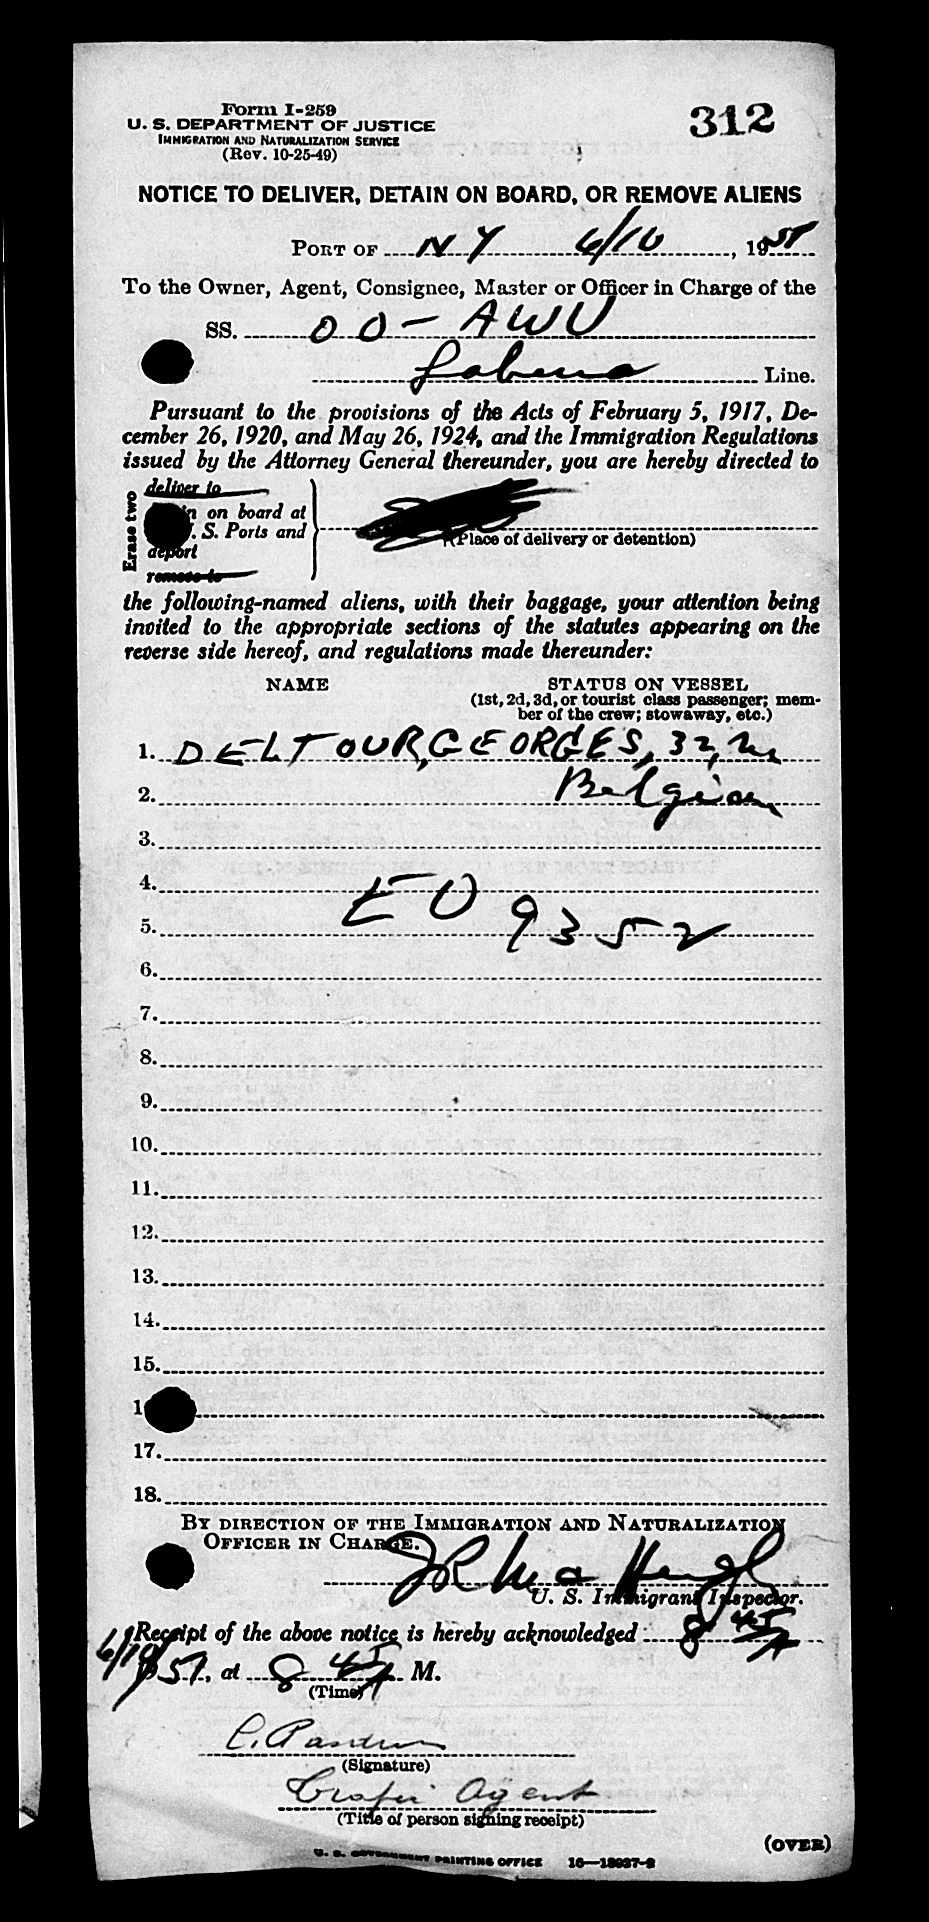 Form I-259
U. S. DEPARTMENT OF JUSTICE
IMMIGRATION AND NATURALIZATION SERVICE
(Rev. 10-25-49)
312
NOTICE TO DELIVER, DETAIN ON BOARD, OR REMOVE ALIENS
PORT OF NY 6/10, 1951
To the Owner, Agent, Consignee, Master or Officer in Charge of the
SS. OO-AWU
Sabena Line.
Pursuant to the provisions of the Acts of February 5, 1917, De-
cember 26, 1920, and May 26, 1924, and the Immigration Regulations
issued by the Attorney General thereunder, you are hereby directed to
Erase two
deliver to
in on board at
. S. Ports and
deport
remove to
(Place of delivery or detention)
the following-named aliens, with their baggage, your attention being
invited to the appropriate sections of the statutes appearing on the
reverse side hereof, and regulations made thereunder:
NAME STATUS ON VESSEL
(1st, 2d, 3d, or tourist class passenger; mem-
ber of the crew; stowaway, etc.)
1. DELTOUR, GEORGES, 32, m
2. Belgian
3.
4. EO
5. 9352
6.
7.
8.
9.
10.
11.
12.
13.
14.
15.
1
17.
18.
BY DIRECTION OF THE IMMIGRATION AND NATURALIZATION
OFFICER IN CHARGE.
U. S. Immigrant Inspector.
Receipt of the above notice is hereby acknowledged 8 45/A
6/10/51, at 8 45/A M.
(Time)
C.
(Signature)
Agent
(Title of person signing receipt)
(OVER)
U. S. GOVERNMENT PRINTING OFFICE 16—18937-2